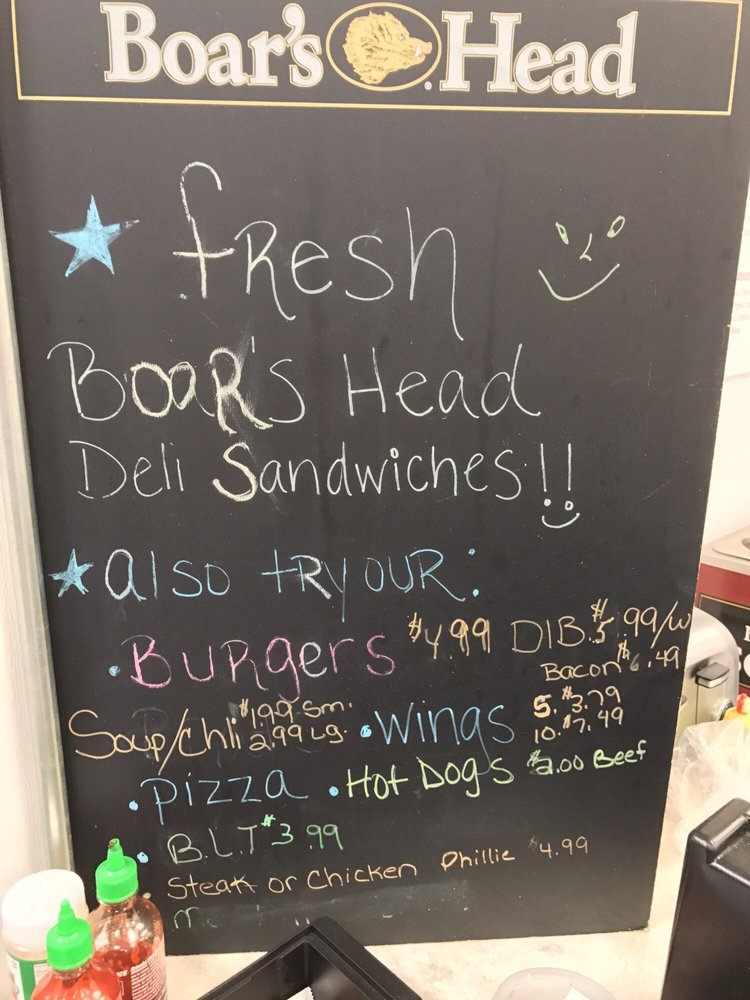 Boar's Head
fresh
Boar's Head
Deli Sandwiches!!
also try our:
Burgers $4.99 DIB. $5.99/w
Bacon $6.49
Soup/Chli $1.99 Sm.
2.99 Lg.
Wings 5. $3.79
10. $7.49
Pizza Hot Dogs $2.00 Beef
B.L.T $3.99
Steak or Chicken Phillie $4.99